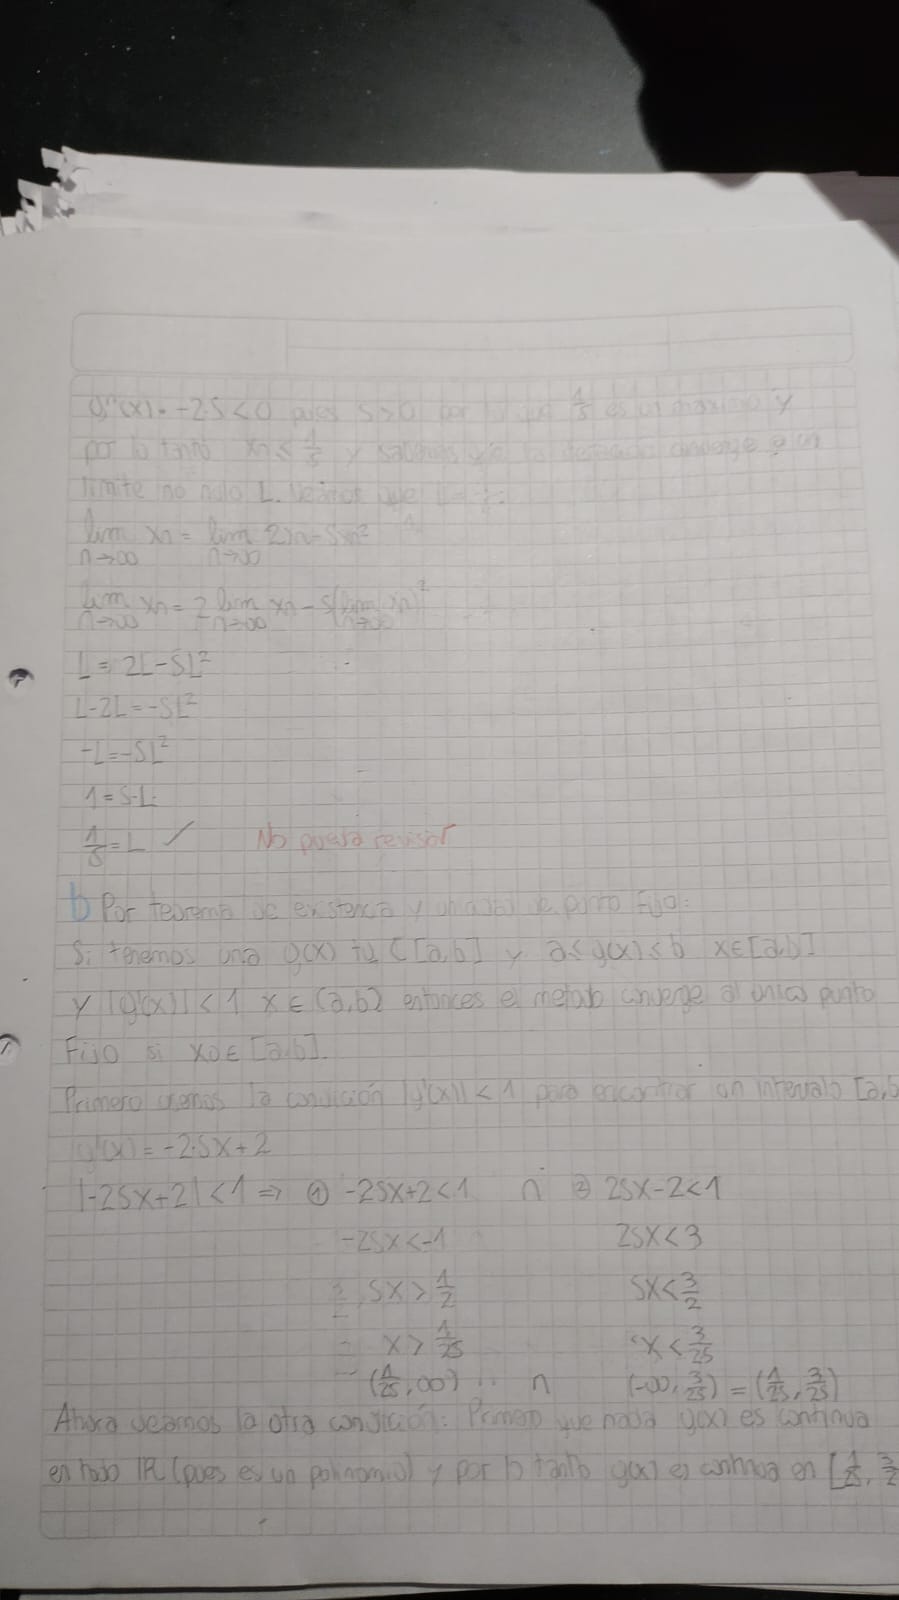 g''(x) = -2·S < 0 pues S>0 por lo que 1/S es un máximo y
por lo tanto xn ≤ 1/S y sabemos que converge a un
límite no nulo L. Veamos que L = 1/S:
lim n→∞ xn = lim n→∞ 2xn - Sxn²
lim n→∞ xn = 2 lim n→∞ xn - S(lim n→∞ xn)²
L = 2L - SL²
L - 2L = -SL²
-L = -SL²
1 = S·L
1/S = L ✓ No puedo revisar
b) Por teorema de existencia y unicidad de punto fijo:
Si tenemos una g(x) tq C[a,b] y a ≤ g(x) ≤ b x∈[a,b]
y |g'(x)| < 1 x∈(a,b) entonces el metodo converge al único punto
Fijo si x0 ∈ [a,b].
Primero veamos la condición |g'(x)| < 1 para encontrar un intervalo [a,b
g'(x) = -2·Sx + 2
|-2Sx+2| < 1 ⇒ ① -2Sx+2 < 1 ∩ ② 2Sx-2 < 1
-2Sx < -1 2Sx < 3
Sx > 1/2 Sx < 3/2
x > 1/2S x < 3/2S
(1/2S, ∞) ∩ (-∞, 3/2S) = (1/2S, 3/2S)
Ahora veamos la otra condición: Primero que nada g(x) es continua
en todo ℝ (pues es un polinomio) y por lo tanto g(x) es continua en